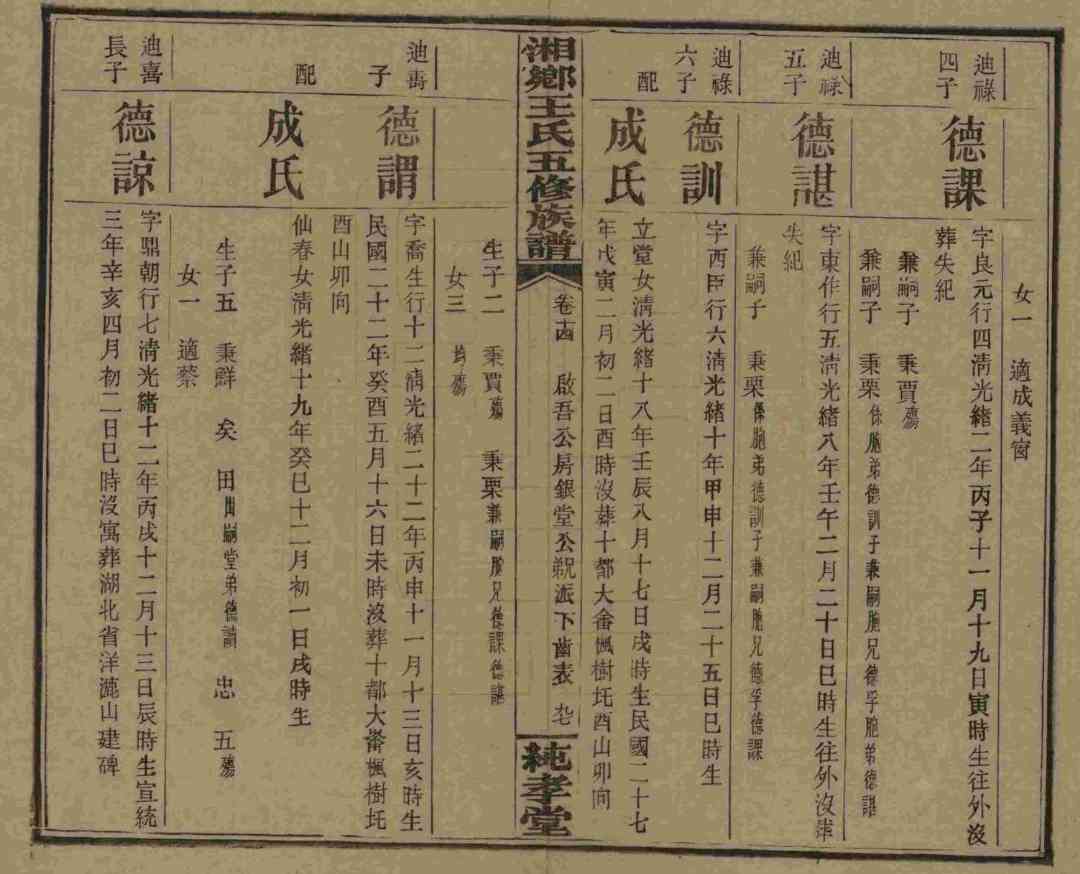 女一　適成義窗
迪祿四子
德課
字良元行四淸光緒二年丙子十一月十九日寅時生往外沒
葬失紀
兼嗣子　秉賈殤
兼嗣子　秉栗係胞弟德訓子兼嗣胞兄德孚胞弟德諶
迪祿五子
德諶
字東作行五淸光緒八年壬午二月二十日巳時生往外沒葬
失紀
兼嗣子　秉栗係胞弟德訓子兼嗣胞兄德孚德課
迪祿六子
德訓
字西臣行六淸光緒十年甲申十二月二十五日巳時生
配
成氏
立堂女淸光緒十八年壬辰八月十七日戌時生民國二十七
年戊寅二月初二日酉時沒葬十都大畬楓樹坵酉山卯向
湘鄉王氏五修族譜
卷十四　啟吾公房銀堂公嗣派下齒表
純孝堂
生子二　秉賈殤　秉栗兼嗣胞兄德課德諶
女三　均殤
迪壽子
德謂
字喬生行十二淸光緒二十二年丙申十一月十三日亥時生
民國二十二年癸酉五月十六日未時沒葬十都大畬楓樹坵
酉山卯向
配
成氏
仙春女淸光緒十九年癸巳十二月初一日戌時生
生子五　秉鮮　矣　田出嗣堂弟德請　忠　五殤
女一　適蔡
迪喜長子
德諒
字鼎朝行七淸光緒十二年丙戌十二月十三日辰時生宣統
三年辛亥四月初二日巳時沒寓葬湖北省洋漉山建碑